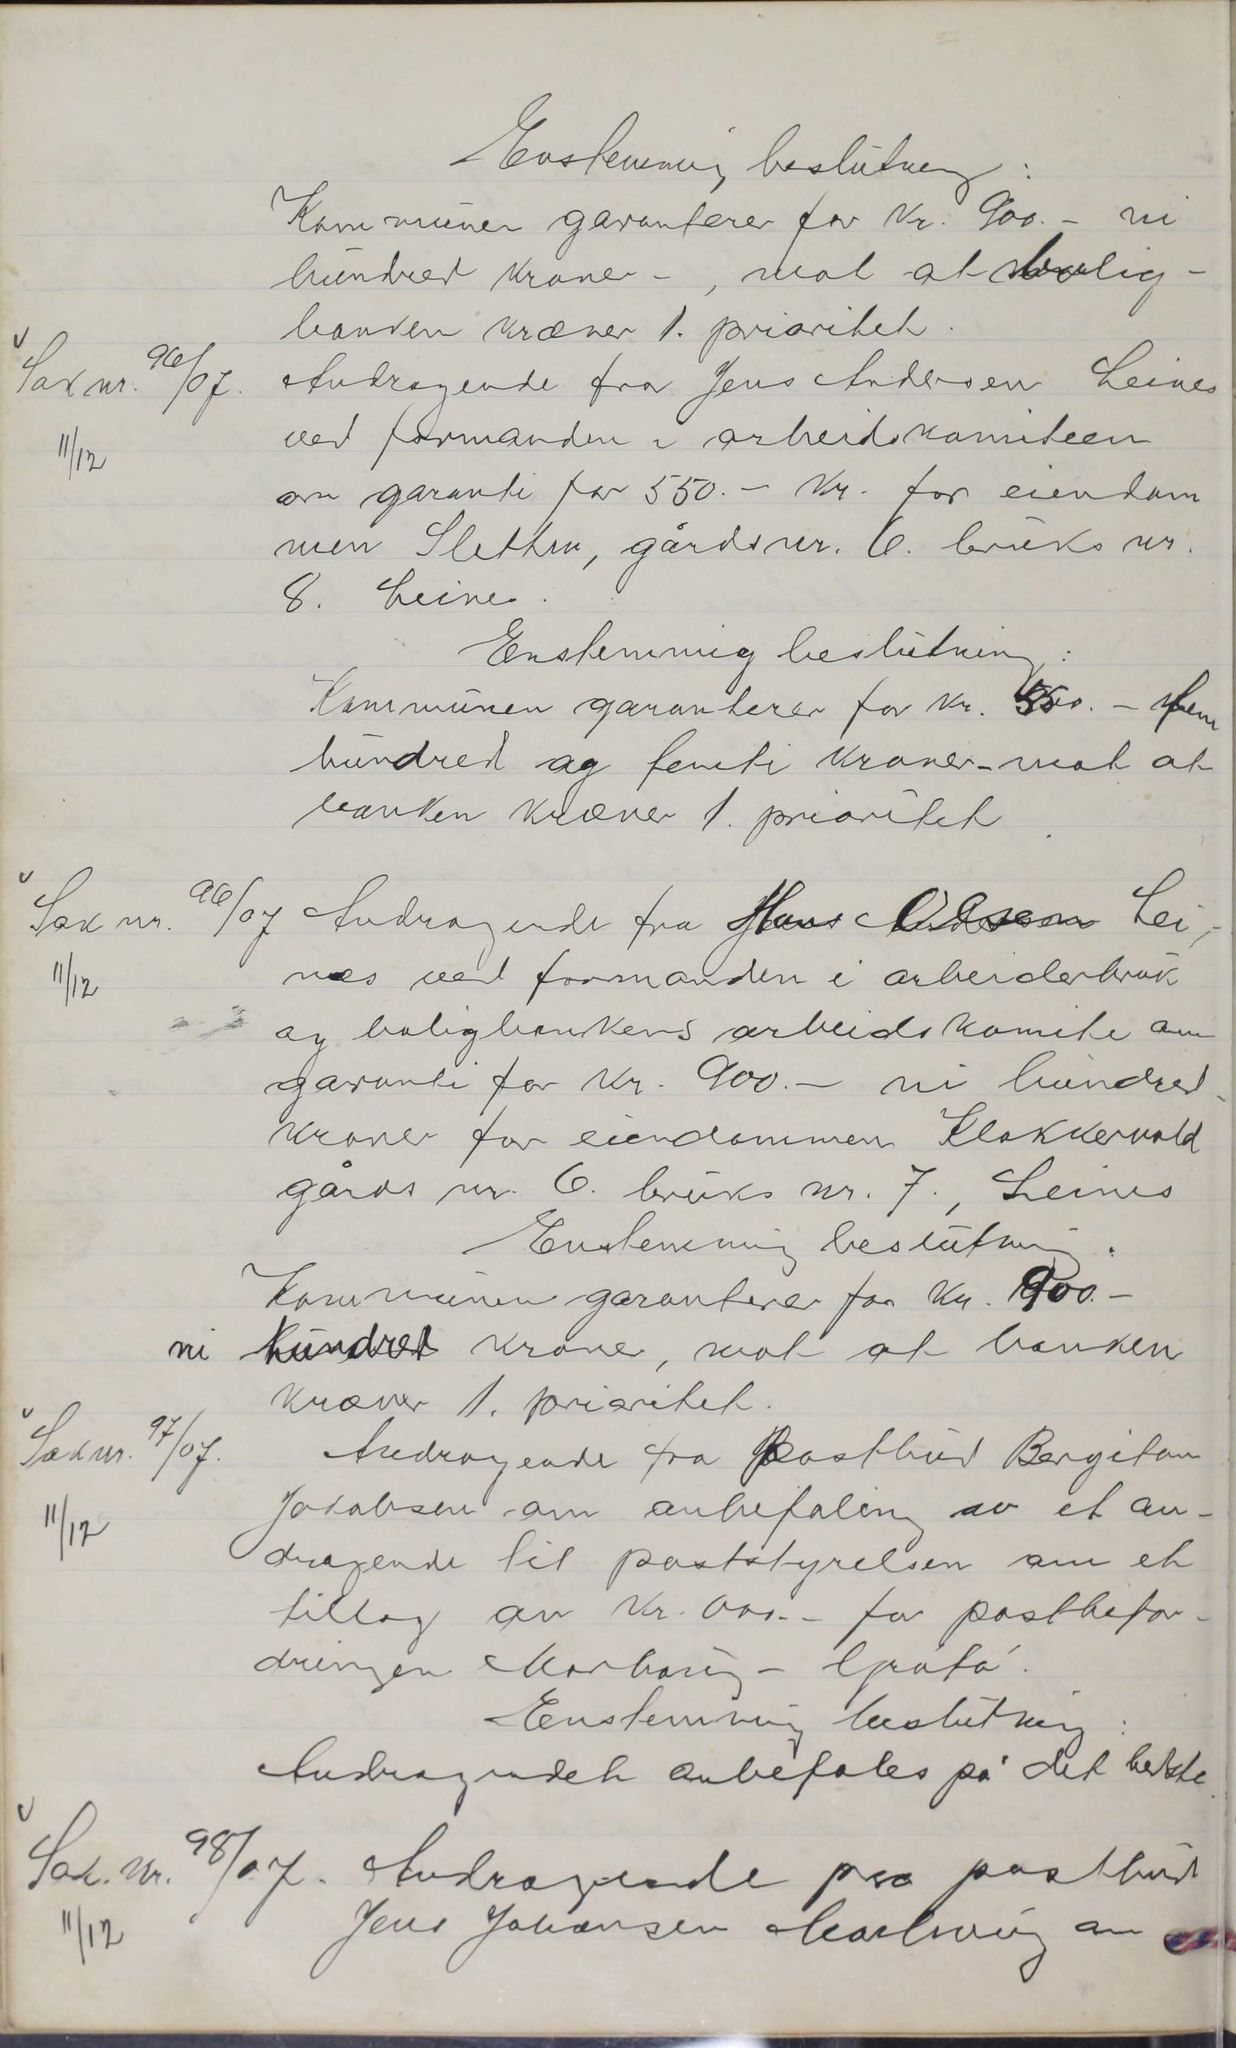 Enstemmig beslutning:
Kommunen garanterer for kr. 900.- ni
hundred kroner -, mot at bolig-
banken kræver 1. prioritet.
Sak nr. 96/07. Andragende fra Jens Andersen Leines
11/12 ved formanden i arbeidskomiteen
om garanti for 550.- kr. for eiendom
men Sletten, gårdsnr. 6. bruks nr.
8. Leines.
Enstemmig beslutning:
Kommunen garanterer for kr. 550.- fem
hundred og femti kroner - mot at
banken kræver 1. prioritet
Sak nr. 96/07 Andragende fra Hans Lei-
11/12 nes ved formanden i arbeiderbruk
og boligbankens arbeidskomite om
garanti for kr. 900.- ni hundred
kroner for eiendommen Klokkervold
gårds nr. 6. bruks nr. 7., Leines
Enstemmig beslutning:
Kommunen garanterer for kr. 900.-
ni hundred kroner, mot at banken
kræver 1. prioritet.
Sak nr. 97/07. Andragende fra Postbud Bergitom
11/12 Jakobsen om anbefaling av et an-
dragende til poststyrelsen om et
tillæg av kr. for postbefor-
dringen -
Enstemmig beslutning:
Andragendet anbefales på det bedste.
Sak. nr. 98/07. Andragende fra postbud
11/12 Jens Johansen om